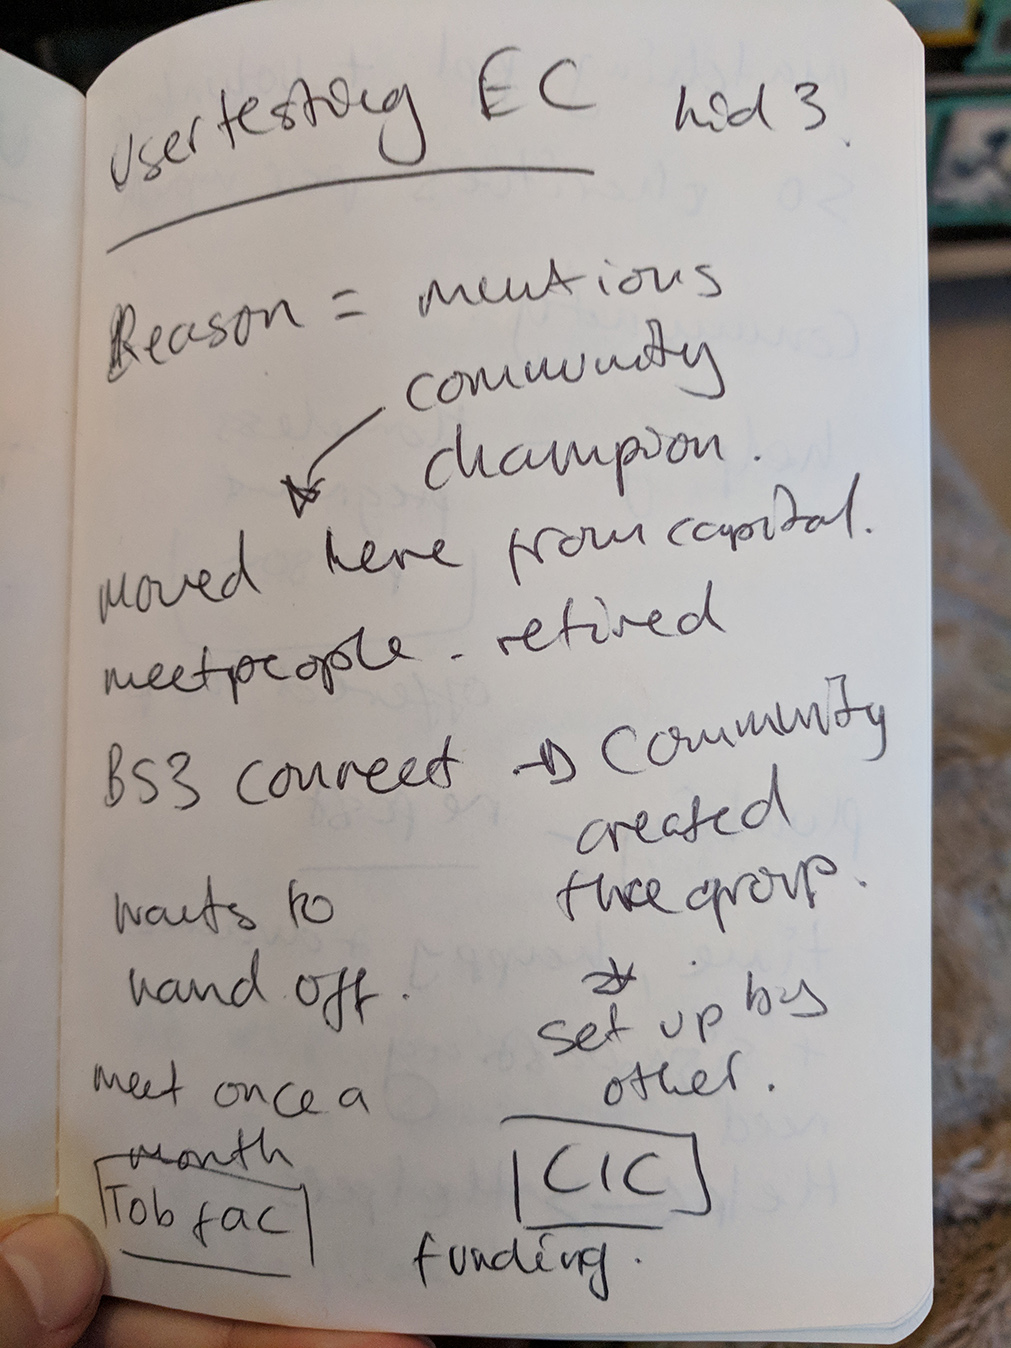 user testing EC
3.
Reason = mentions
community
champion.
moved here from capital.
meet people - retired
BS3 connect → Community
created
the group.
wants to
hand off.
set up by
other.
meet once a
month
Tob fac
CIC
funding.